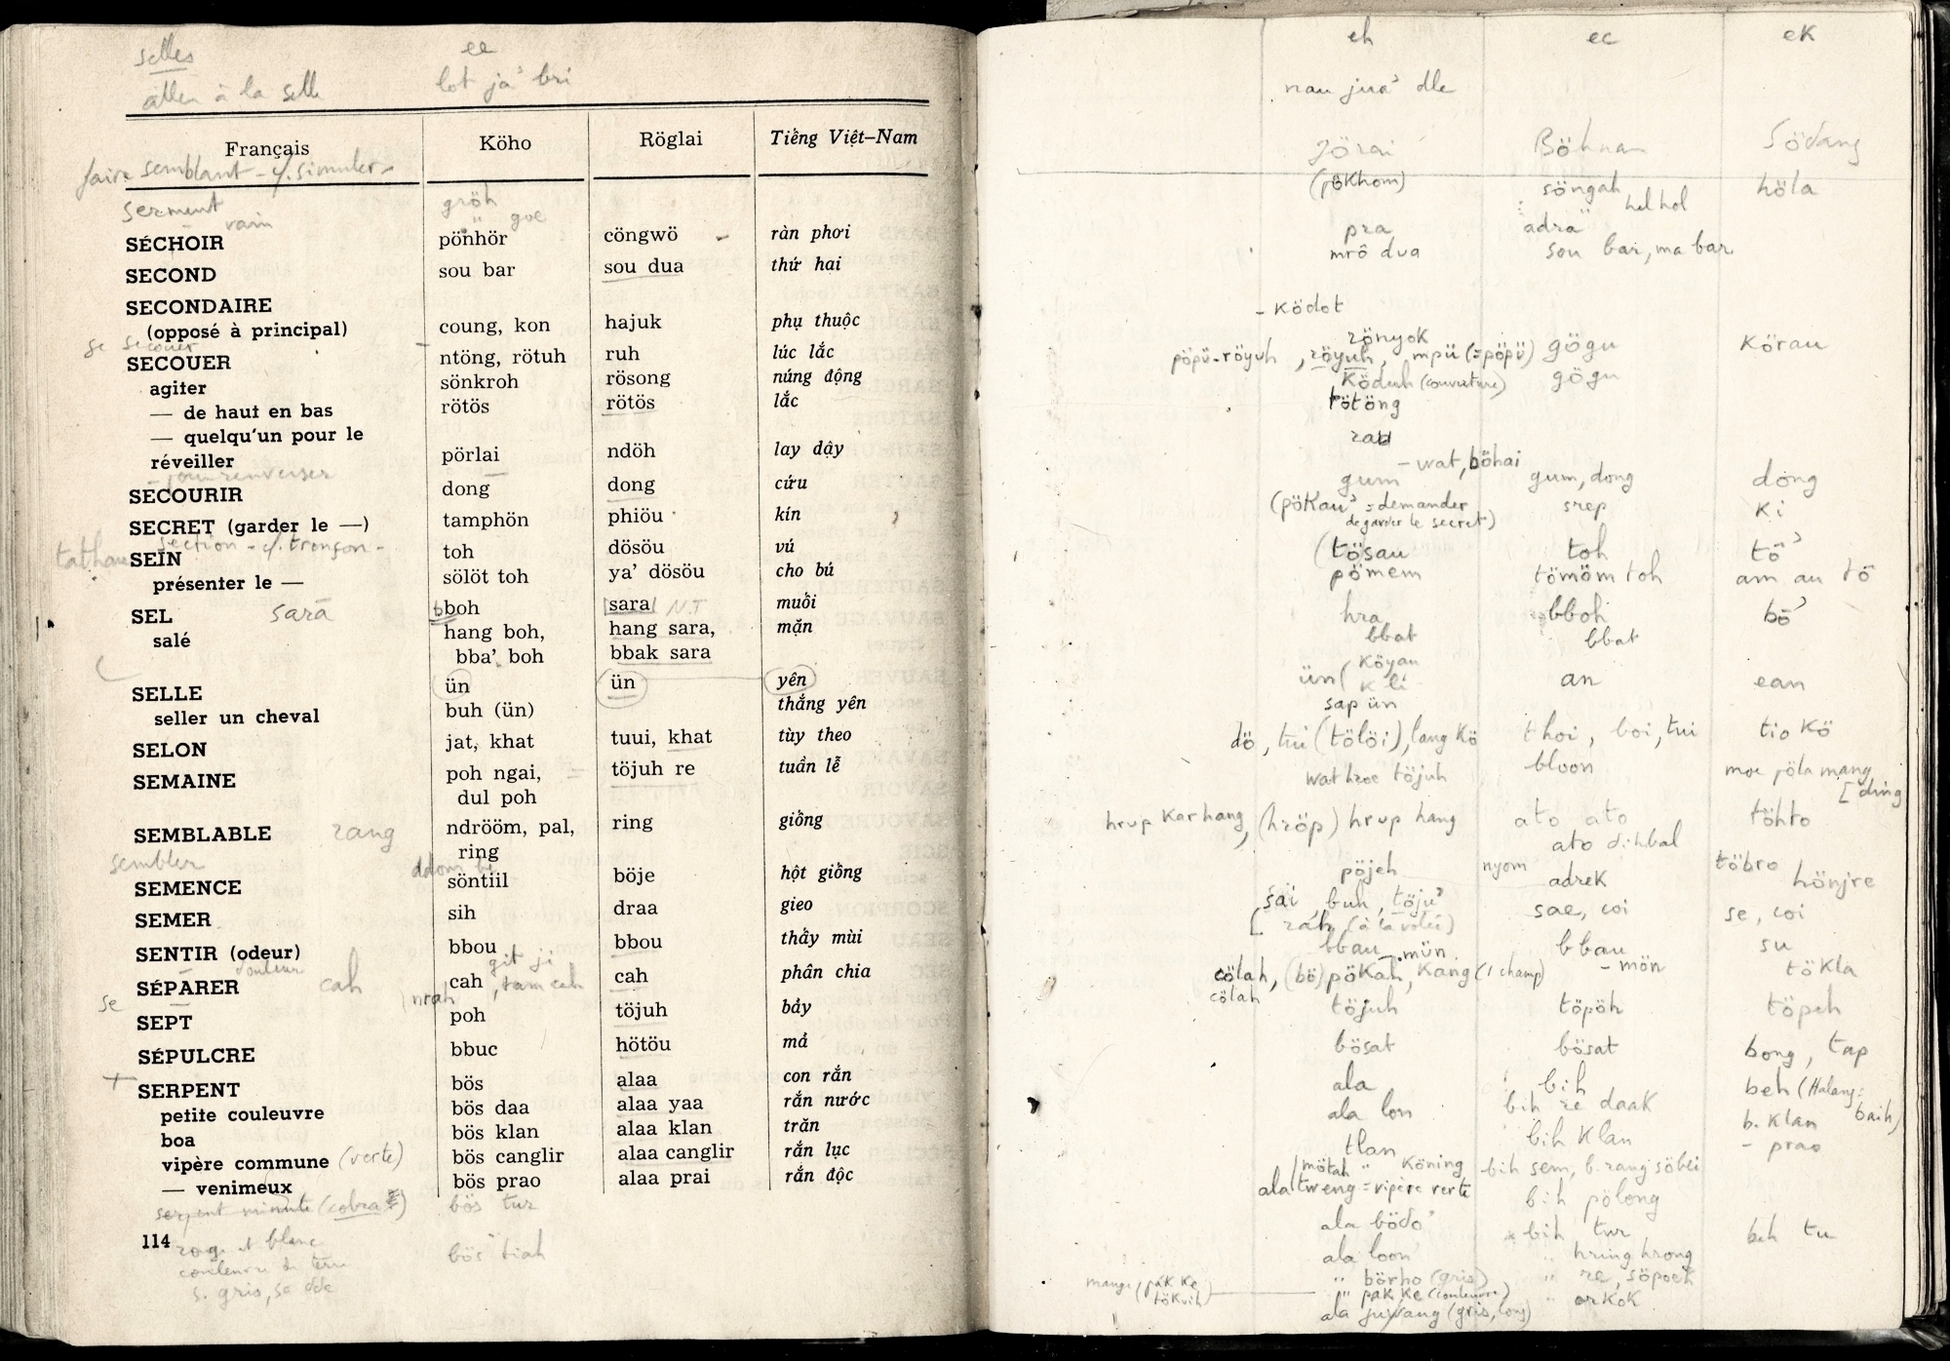 selles ee
aller à la selle lot ja' bri
Français Köho Röglai Tiếng Việt–Nam
faire semblant - cf. simuler -
serment gröh
vain goe
SÉCHOIR pönhör cöngwö ràn phơi
SECOND sou bar sou dua thứ hai
SECONDAIRE
(opposé à principal) coung, kon hajuk phụ thuộc
se secouer
SECOUER ntöng, rötuh ruh lúc lắc
agiter sönkroh rösong núng động
— de haut en bas rötös rötös lắc
— quelqu'un pour le
réveiller pörlai ndöh lay dậy
- pour renverser
SECOURIR dong dong cứu
SECRET (garder le —) tamphön phiöu kín
section - cf. tronçon -
SEIN toh dösöu vú
présenter le — sölöt toh ya' dösöu cho bú
SEL sara bboh sara N.T muối
salé hang boh, hang sara, mặn
bba' boh bbak sara
SELLE ün ün yên
seller un cheval buh (ün) thắng yên
SELON jat, khat tuui, khat tùy theo
SEMAINE poh ngai, töjuh re tuần lễ
dul poh
SEMBLABLE rang ndrööm, pal, ring giống
ring
sembler
SEMENCE söntiil böje hột giống
SEMER sih draa gieo
SENTIR (odeur) bbou bbou thấy mùi
douleur git ji
SÉPARER cah cah, tam cah cah phân chia
se nrah
SEPT poh töjuh bảy
SÉPULCRE bbuc hötöu mả
SERPENT bös alaa con rắn
petite couleuvre bös daa alaa yaa rắn nước
boa bös klan alaa klan trăn
vipère commune (verte) bös canglir alaa canglir rắn lục
— venimeux bös prao alaa prai rắn độc
serpent minute (cobra) bös tur
114 rouge et blanc bös tiah
couleuvre de terre
s. gris, se dde
eh ec eK
nau jua' dle
Jörai Böhnan Södang
(pökhom) söngah höla
hel hol
pra adra
mrô dua sou bar, ma bar
- Ködot
rönyok
pöpü-röyuh, röyuh, mpü (=pöpü) gögu Körau
Köduh (couverture) gögu
tötöng
- wat, böhai
gum gum, dong dong
(pöKau' = demander srep Ki
de garder le secret)
(tösau toh tö'
pömem tömöm toh am au tö
hra bboh bö'
bbat bbat
ün (Köyau an ean
sap ün
dö, tui (tölöi), lang Kö thoi, boi, tui tio Kö
wat hroe töjuh bloon moe pöla mang
[ding
hrup Kar hang, (hröp) hrup hang ato ato töhto
ato dihbal
pöjeh nyom adrek töbro hönjre
sai buh, töju' sae, coi se, coi
[rah (à la volée)
bbau - mün bbau su
- mön
cölah, (bö)pöKah, Kang (1 champ) töKla
cölah
töjuh töpöh töpeh
bösat bösat bong, tap
ala bih beh (Halang:
baih)
ala lon bih re daaK b. Klan
tlan bih Klan - prao
mötah " Köning bih sem, b. rang söbei
ala tweng = vipère verte
bih pölong
ala bödo' bih tur beh tu
ala loon " hring hrong
" börho (gris) " re, söpoeh
mange (pak Ke " pak Ke (couleuvre) " orKoK
töKvih)
ala juyang (gris, long)